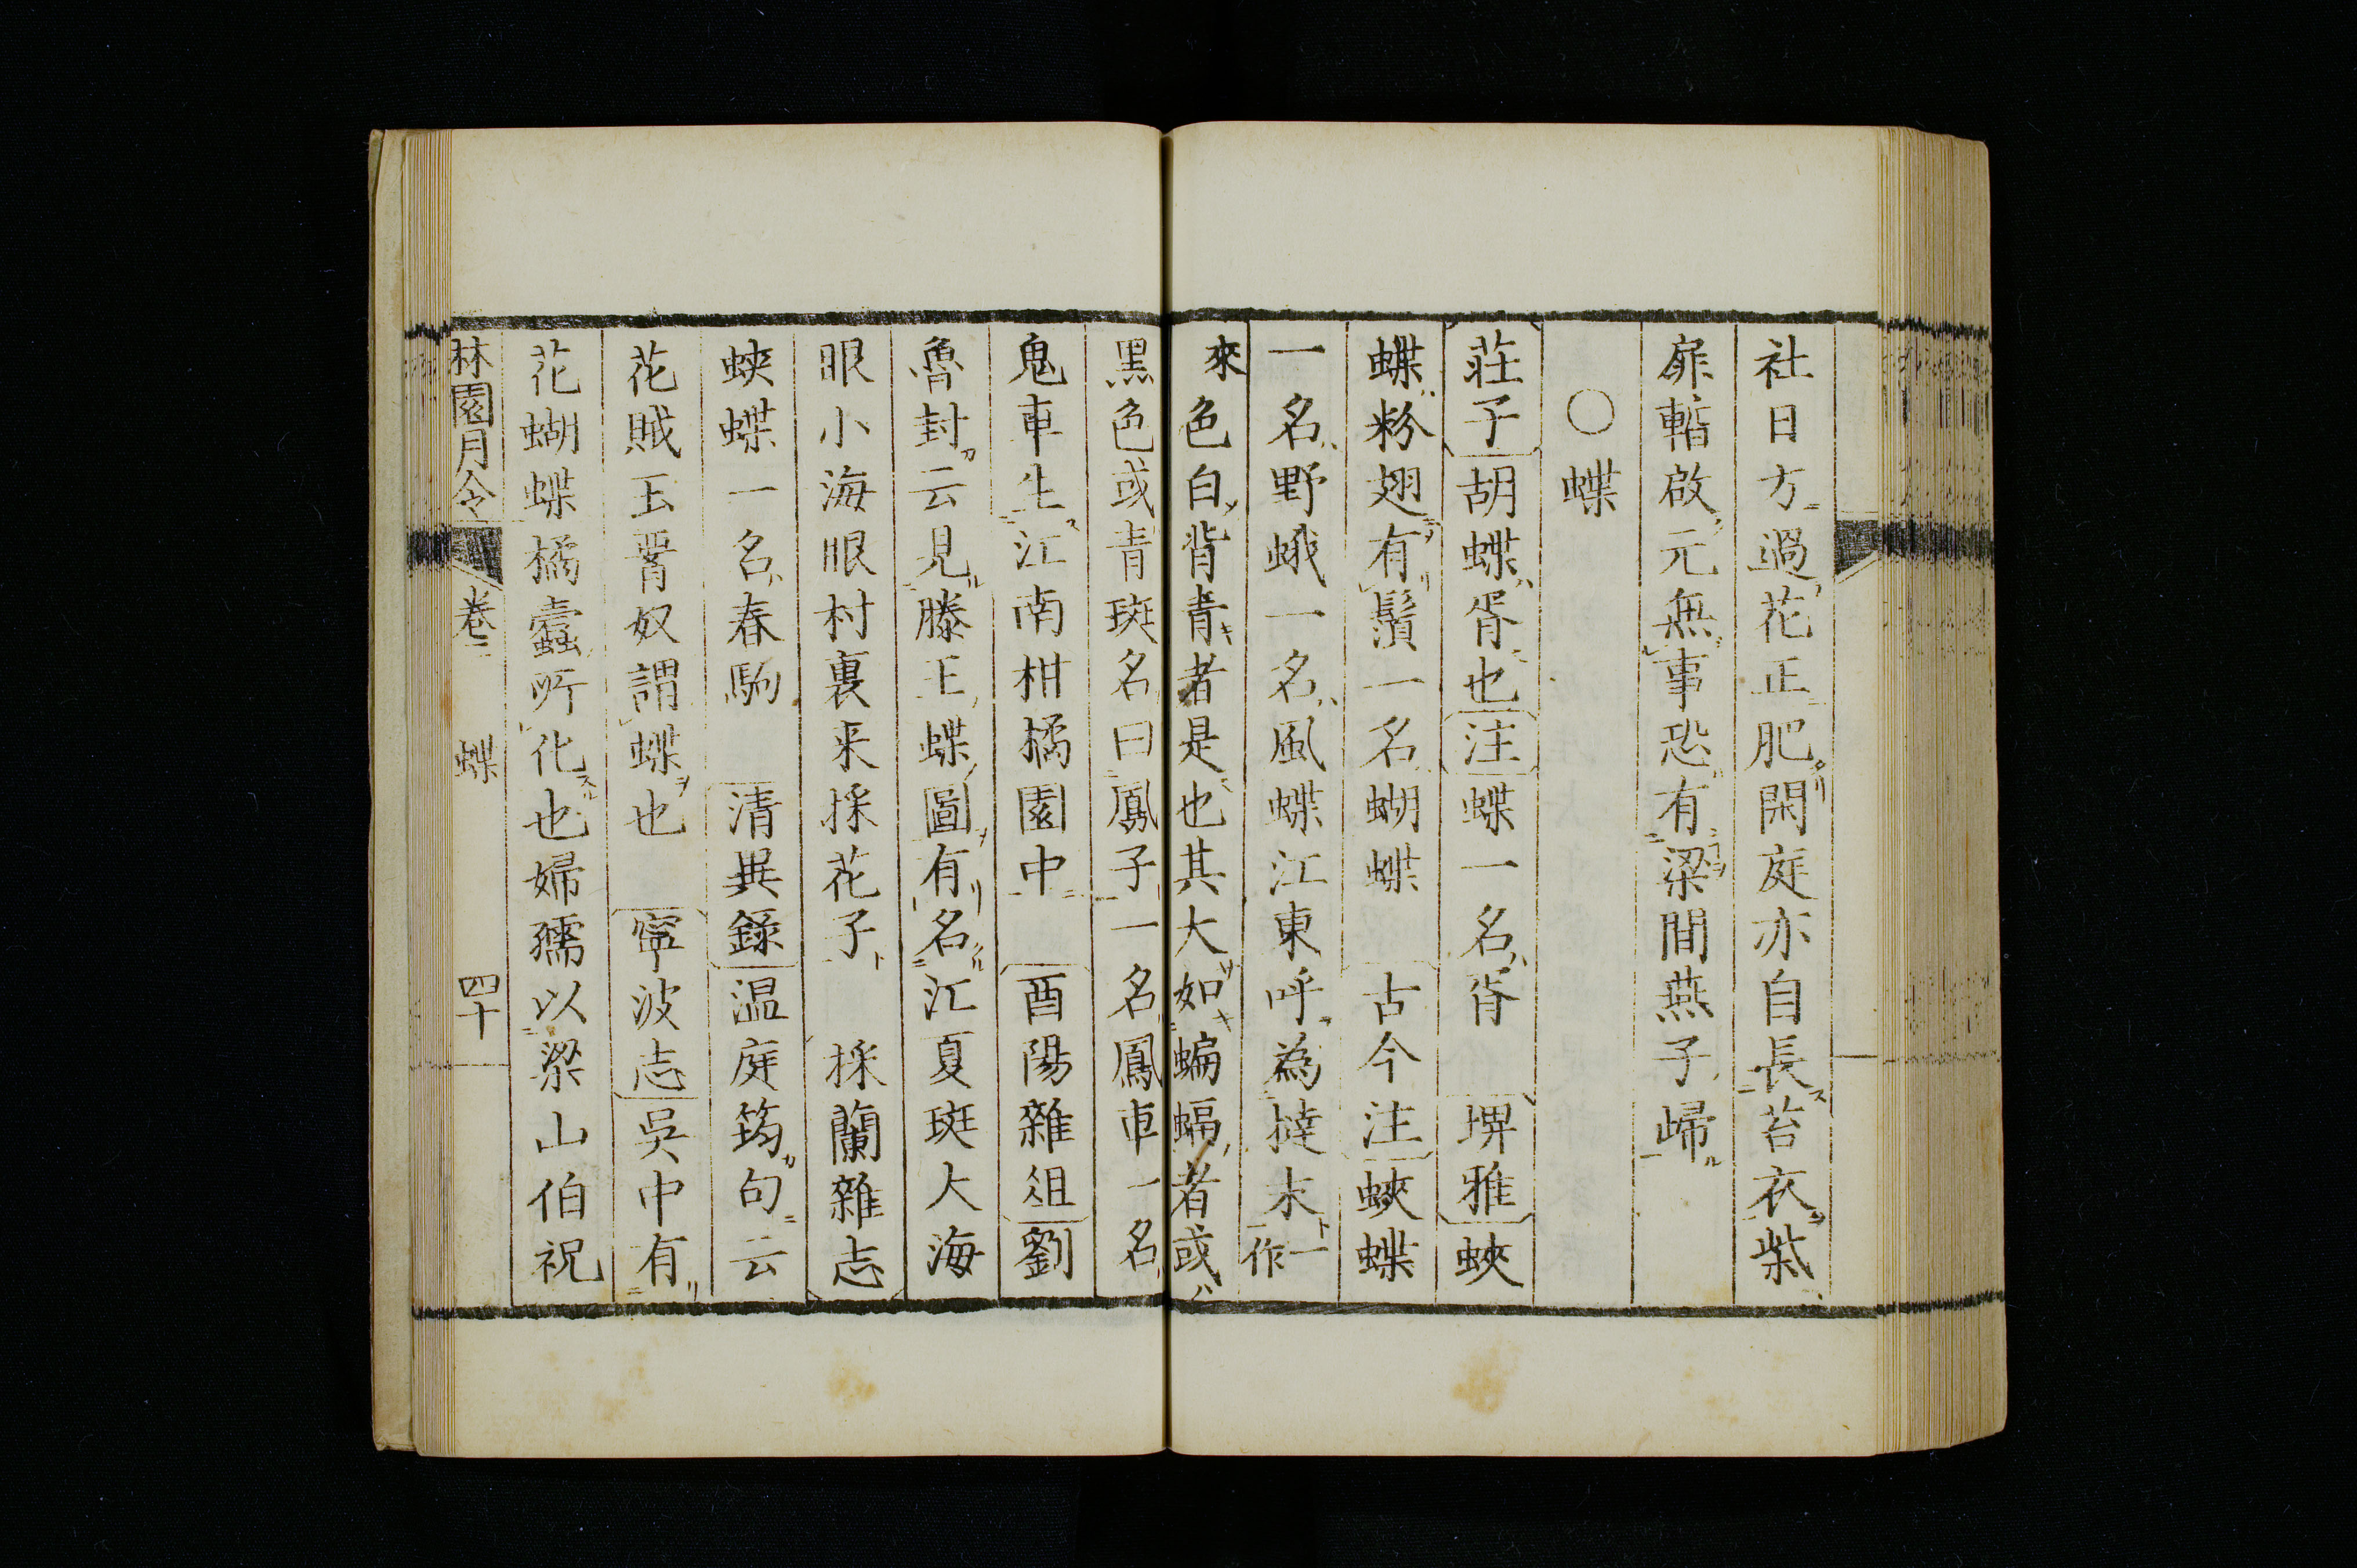 社日方過花正肥閑庭亦自長苔衣柴
扉暫啟元無事恐有梁間燕子歸
〇蝶
莊子胡蝶胥也注蝶一名胥 埤雅蛺
蝶粉翅有鬚一名蝴蝶 古今注蛺蝶
一名野蛾一名風蝶江東呼為撻末一作
來色白背青者是也其大如蝙蝠者或
黑色或青斑名曰鳳子一名鳳車一名
鬼車生江南柑橘園中 酉陽雜俎劉
魯封云見滕王蝶圖有名江夏斑大海
眼小海眼村裏来採花子 採蘭雜志
蛺蝶一名春駒 清異錄温庭筠句云
花賊玉胥奴謂蝶也 寧波志吳中有
花蝴蝶橘蠹所化也婦孺以梁山伯祝
林園月令 卷二 蝶 四十